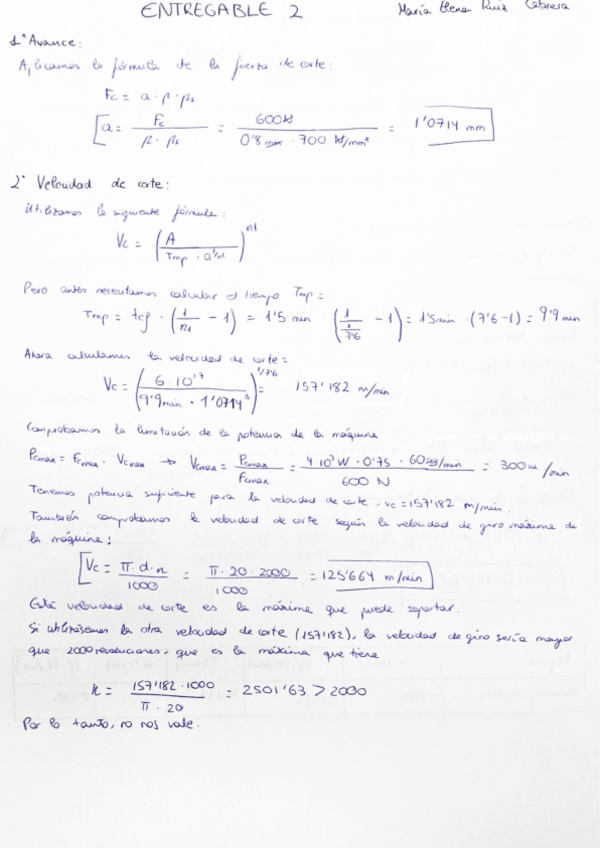 ENTREGABLE 2
María Elena Ruiz Cabrera
1º Avance:
Aplicamos la fórmula de la fuerza de corte:
Fc = a · p · ps
a = Fc / (p · ps) = 600N / (0'8 mm · 700 N/mm²) = 1'0714 mm
2º Velocidad de corte:
Utilizamos la siguiente fórmula:
Vc = (A / (Tmp · a^1/n2))^n1
Pero antes necesitamos calcular el tiempo Tmp =
Tmp = tcf · (1/n1 - 1) = 1'5 min (1/(1/7'6) - 1) = 1'5min · (7'6-1) = 9'9 min
Ahora calculamos la velocidad de corte =
Vc = (6·10^17 / (9'9min · 1'0714^3))^1/7'6 = 157'182 m/min
Comprobamos la limitación de la potencia de la máquina
Pcmax = Fcmax · Vcmax → Vcmax = Pcmax / Fcmax = 4·10³W · 0'75 · 60seg/min / 600 N = 300m/min
Tenemos potencia suficiente para la velocidad de corte, vc = 157'182 m/min.
También comprobamos la velocidad de corte según la velocidad de giro máxima de
la máquina:
Vc = π·d·n / 1000 = π·20·2000 / 1000 = 125'664 m/min
Está velocidad de corte es la máxima que puede soportar.
Si utilizásemos la otra velocidad de corte (157'182), la velocidad de giro sería mayor
que 2000 revoluciones, que es la máxima que tiene
n = 157'182·1000 / π·20 = 2501'63 > 2000
Por lo tanto, no nos vale.